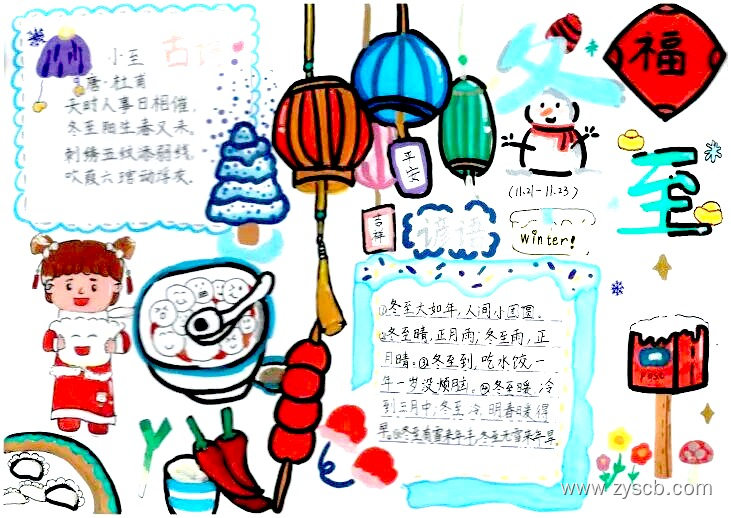 小至 古诗
唐·杜甫
天时人事日相催,
冬至阳生春又来.
刺绣五纹添弱线,
吹葭六琯动浮灰.
平安
吉祥
冬
至
福
(11.21-11.23)
谚语
Winter!
①冬至大如年,人间小团圆.
②冬至晴,正月雨;冬至雨,正
月晴。③冬至到,吃水饺,一
年一岁没烦恼。④冬至暖,冷
到三月中;冬至冷,明春暖得
早。⑤冬至有雪来年丰,冬至无雪来年旱
Post
www.zyscb.com